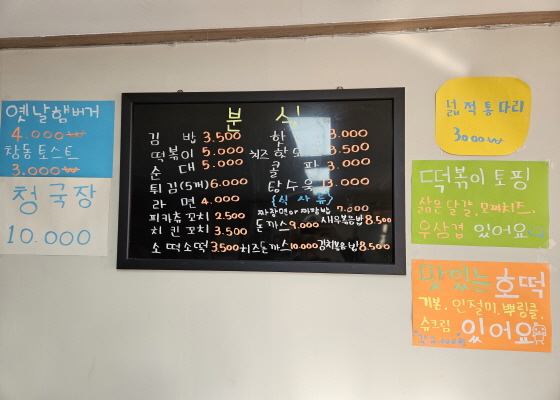 옛날햄버거
4.000₩
창동토스트
3.000₩
청국장
10.000
분식
김밥 3.500
떡볶이 5.000
순대 5.000
튀김(5개) 6.000
라면 4.000
피카츄꼬치 2.500
치킨꼬치 3.500
소떡소떡 3.500
3.000
치즈핫도 3.500
콜팝 3.000
탕수육 13.000
{식사류}
짜장면or짜장밥 7.000
돈까스 9.000 새우볶음밥 8.500
치즈돈까스 10.000 김치볶음밥 8.500
넓적통다리
3000₩
떡볶이 토핑
삶은달걀, 모짜치즈,
우삼겹 있어요
맛있는 호떡
기본, 인절미, 뿌링클,
슈크림 있어요